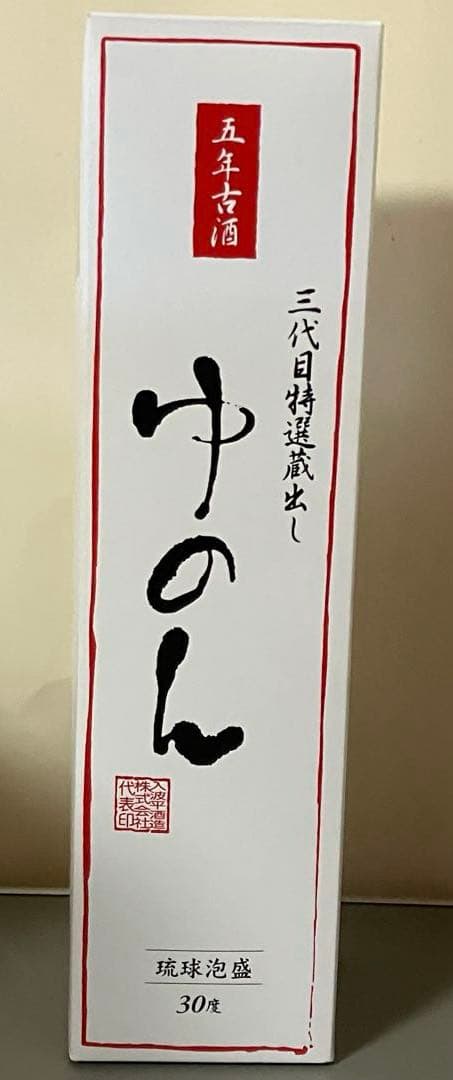 五年古酒
三代目特選蔵出し
ゆのん
入波平酒造
株式会社
代表印
琉球泡盛
30度